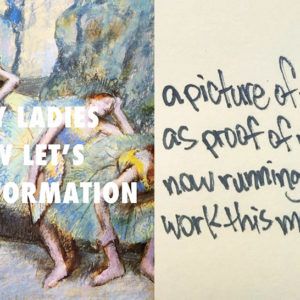 LADIES
LET'S
FORMATION
a picture of
as proof of
now running
work this